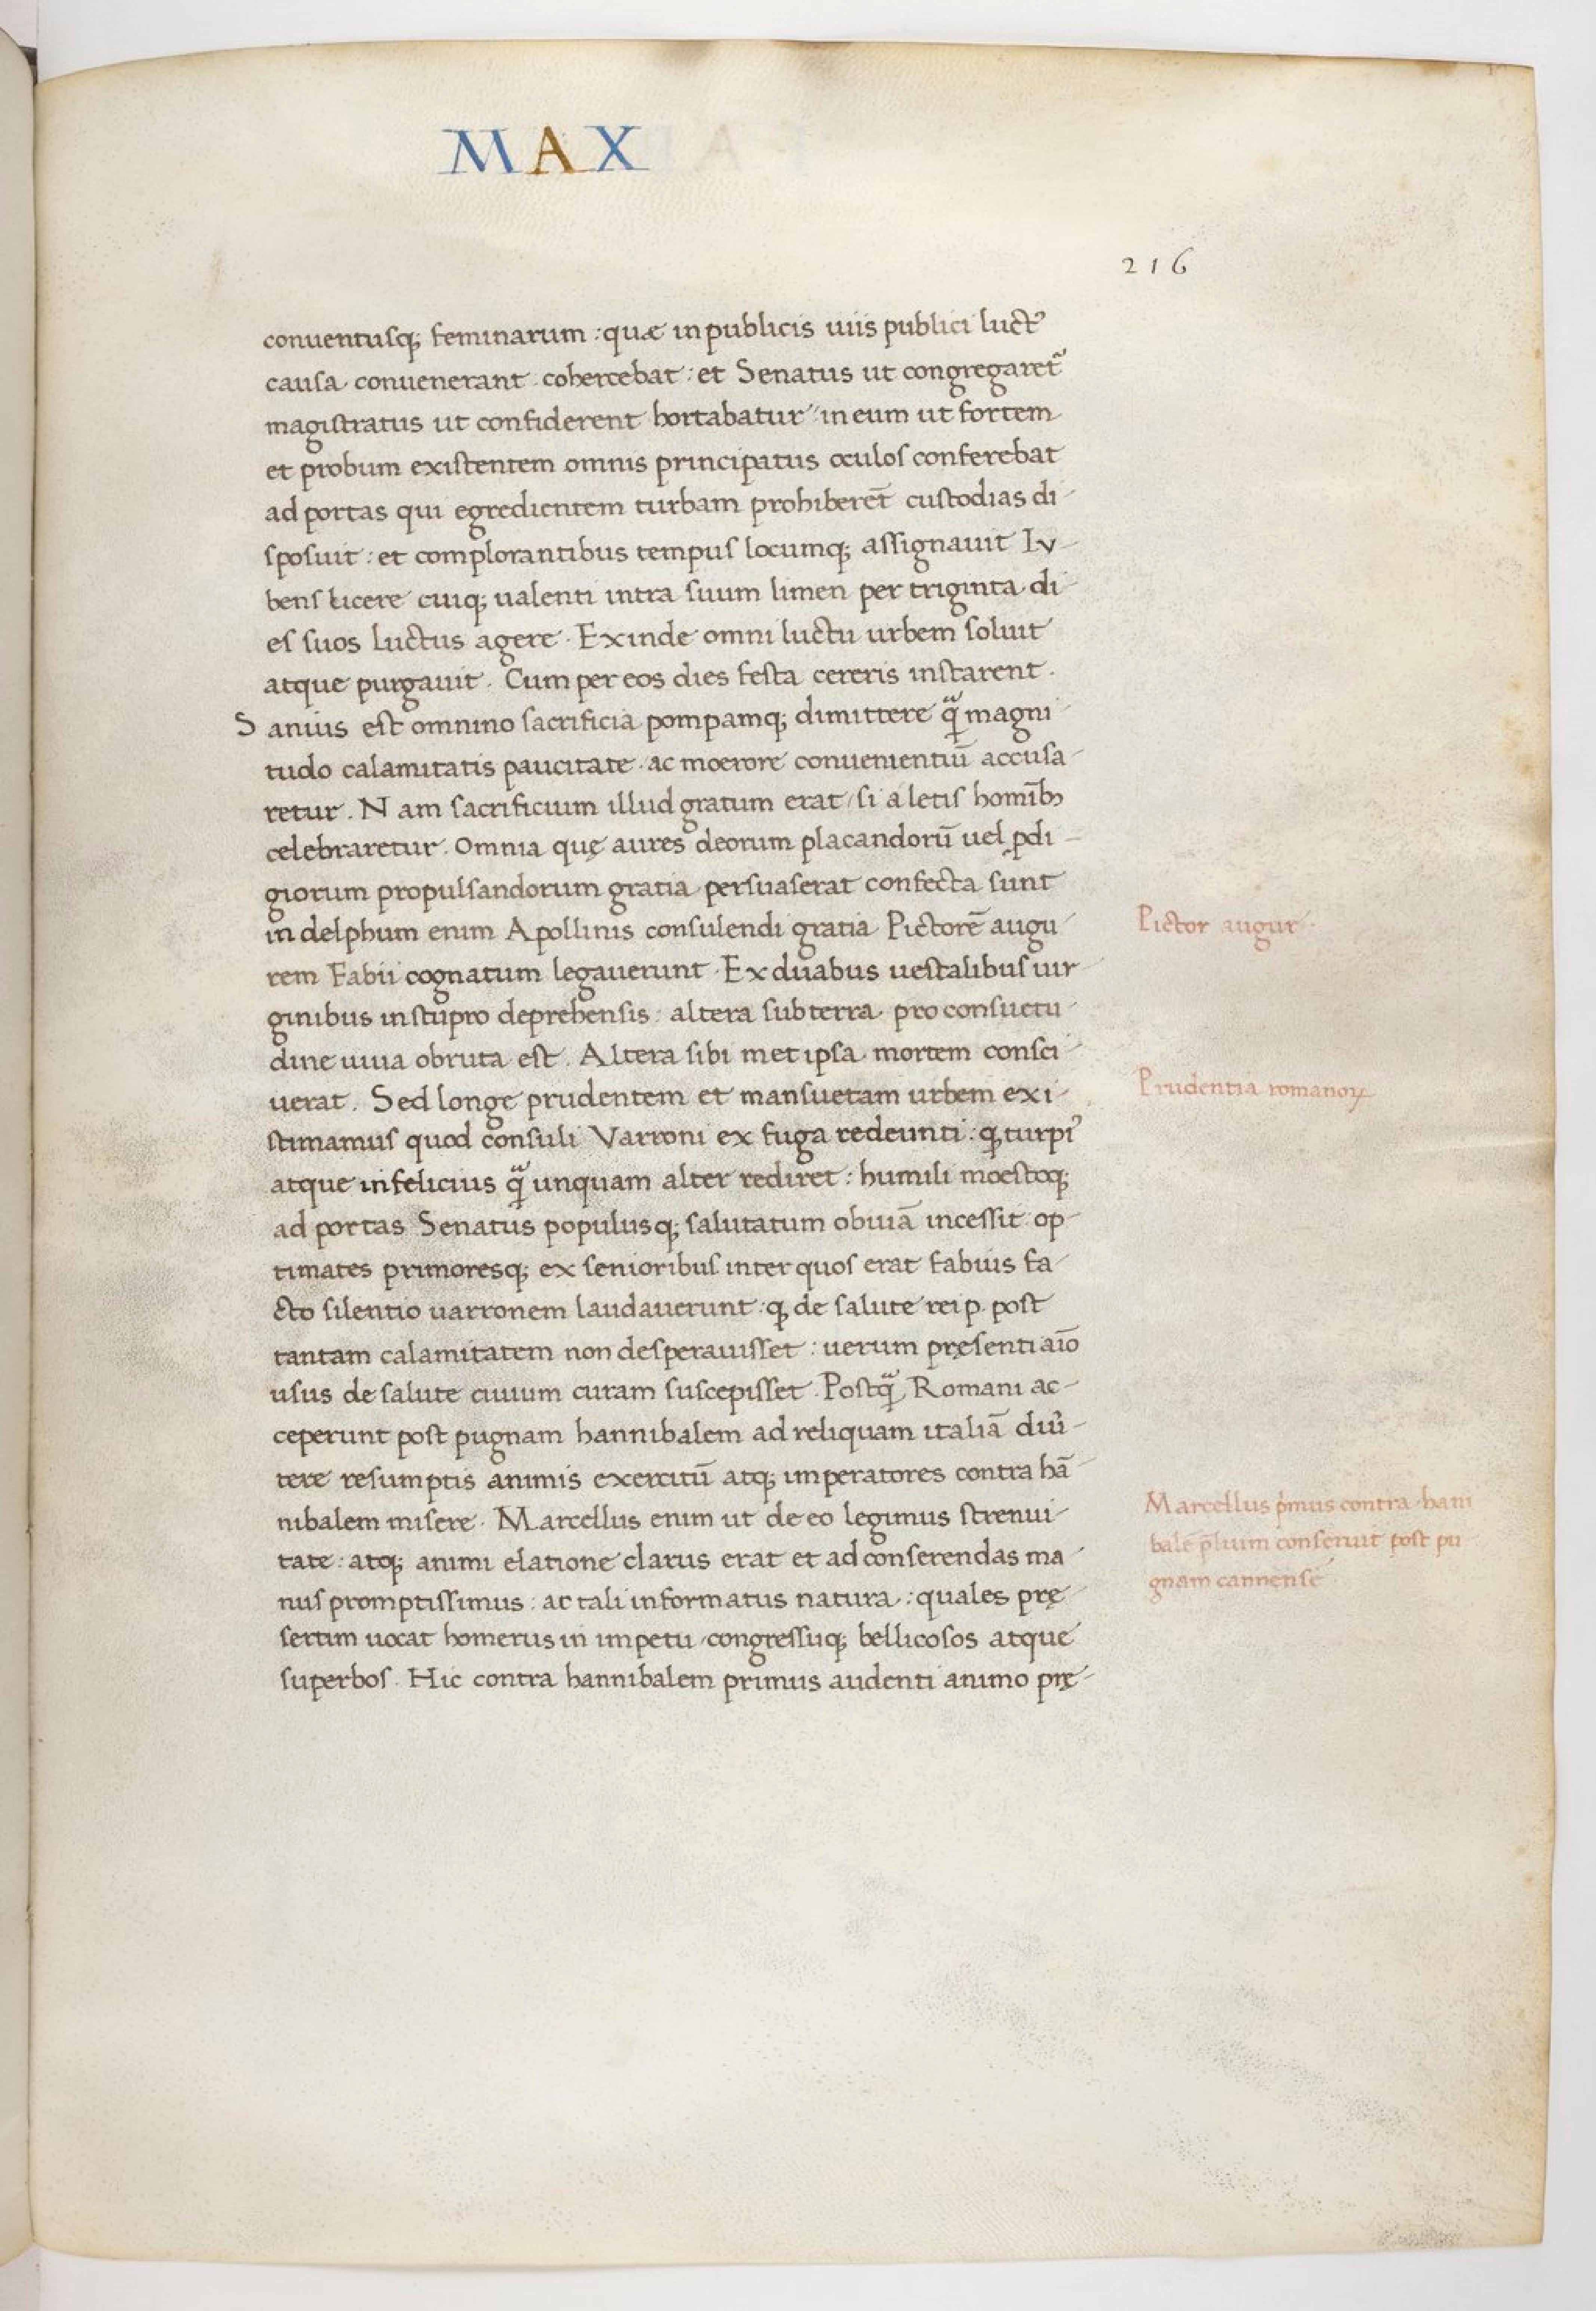 MAX
216
conuentusq; feminarum : quæ in publicis uiis publici luct᾿
causa · conuenerant · cohercebat : et Senatus ut congregaret᷑
magistratus ut confiderent hortabatur in eum ut fortem
et probum existentem omnis principatus oculos conferebat
ad portas qui egredientem turbam prohiberēt custodias di-
sposuit : et complorantibus tempus locumq; assignauit Iv-
bens licere cuiq; ualenti intra suum limen per triginta di-
es suos luctus agere · Exinde omni luctu urbem soluit
atque purgauit · Cum per eos dies festa cereris instarent ·
Sanius est omnino sacrificia pompamq; dimittere qᷓ magni-
tudo calamitatis paucitate · ac moerore conuenientiū accusa-
retur . Nam sacrificium illud gratum erat / si a letis homībꝫ
celebraretur . Omnia quę aures deorum placandorū uel ꝓdi-
giorum propulsandorum gratia persuaserat confecta sunt
in delphum enim Apollinis consulendi gratia Pictorē augu-
Pictor augur ·
rem Fabii cognatum legauerunt · Ex duabus uestalibus uir-
ginibus in stupro deprehensis : altera sub terra · pro consuetu-
dine uiua obruta est . Altera sibi met ipsa mortem consci-
uerat . Sed longe prudentem et mansuetam urbem exi-
Prudentia romanoꝝ
stimamus quod consuli Varroni ex fuga redeunti : ꝙ turpi᾿
atque infelicius qᷓ unquam alter rediret : humili moestoq;
ad portas Senatus populusq; salutatum obuiā incessit op-
timates primoresq; ex senioribus inter quos erat fabius fa-
cto silentio uarronem laudauerunt : ꝙ de salute rei p. post
tantam calamitatem non desperauisset : uerum pręsenti aīo
usus de salute ciuium curam suscepisset . Postqᷓ Romani ac-
ceperunt post pugnam hannibalem ad reliquam italiā diu᾿-
tere resumptis animis exercitū atq; imperatores contra hā-
nibalem misere · Marcellus enim ut de eo legimus strenui-
Marcellus p͛mus contra hani
tate : atq; animi elatione clarus erat et ad conserendas ma-
balē p̄lium conseruit post pu
nus promptissimus : ac tali informatus natura : quales prę-
gnam cannensē
sertim uocat homerus in impetu congressuq; bellicosos atque
superbos . Hic contra hannibalem primus audenti animo prę-